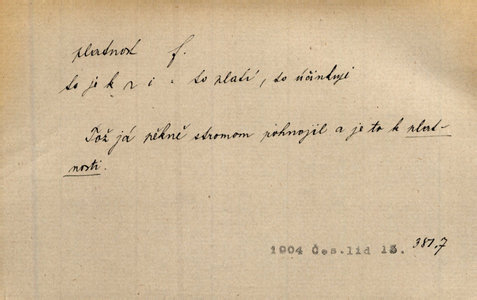 platnost f.
to je k r i = to platí, to účinkuje
Tož já pěkně stromom pohnojil a je to k plat-
nosti.
1904 Čes.lid 13. 381,7